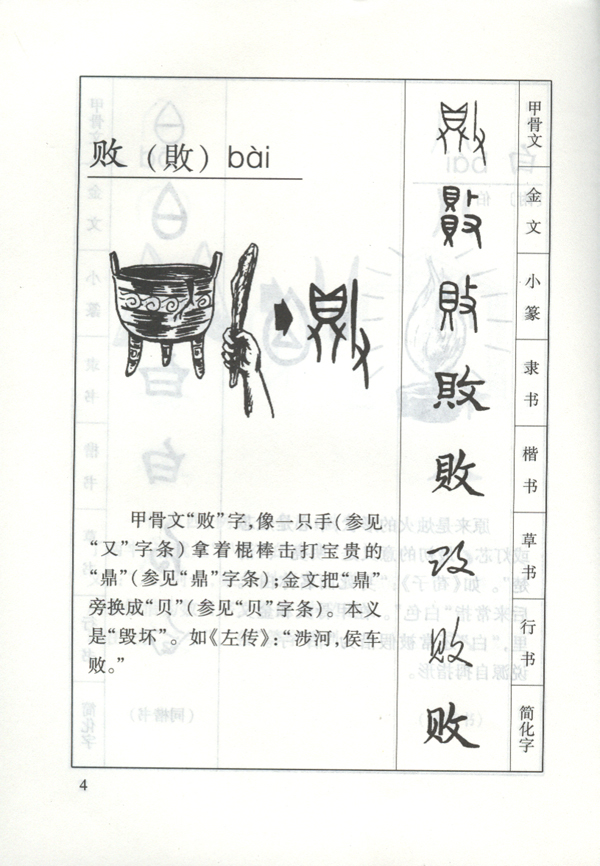 败（敗）bài
甲骨文“败”字，像一只手（参见
“又”字条）拿着棍棒击打宝贵的
“鼎”（参见“鼎”字条）；金文把“鼎”
旁换成“贝”（参见“贝”字条）。本义
是“毁坏”。如《左传》：“涉河，侯车
败。”
甲骨文
金文
小篆
隶书
敗
楷书
敗
草书
行书
败
简化字
败
4